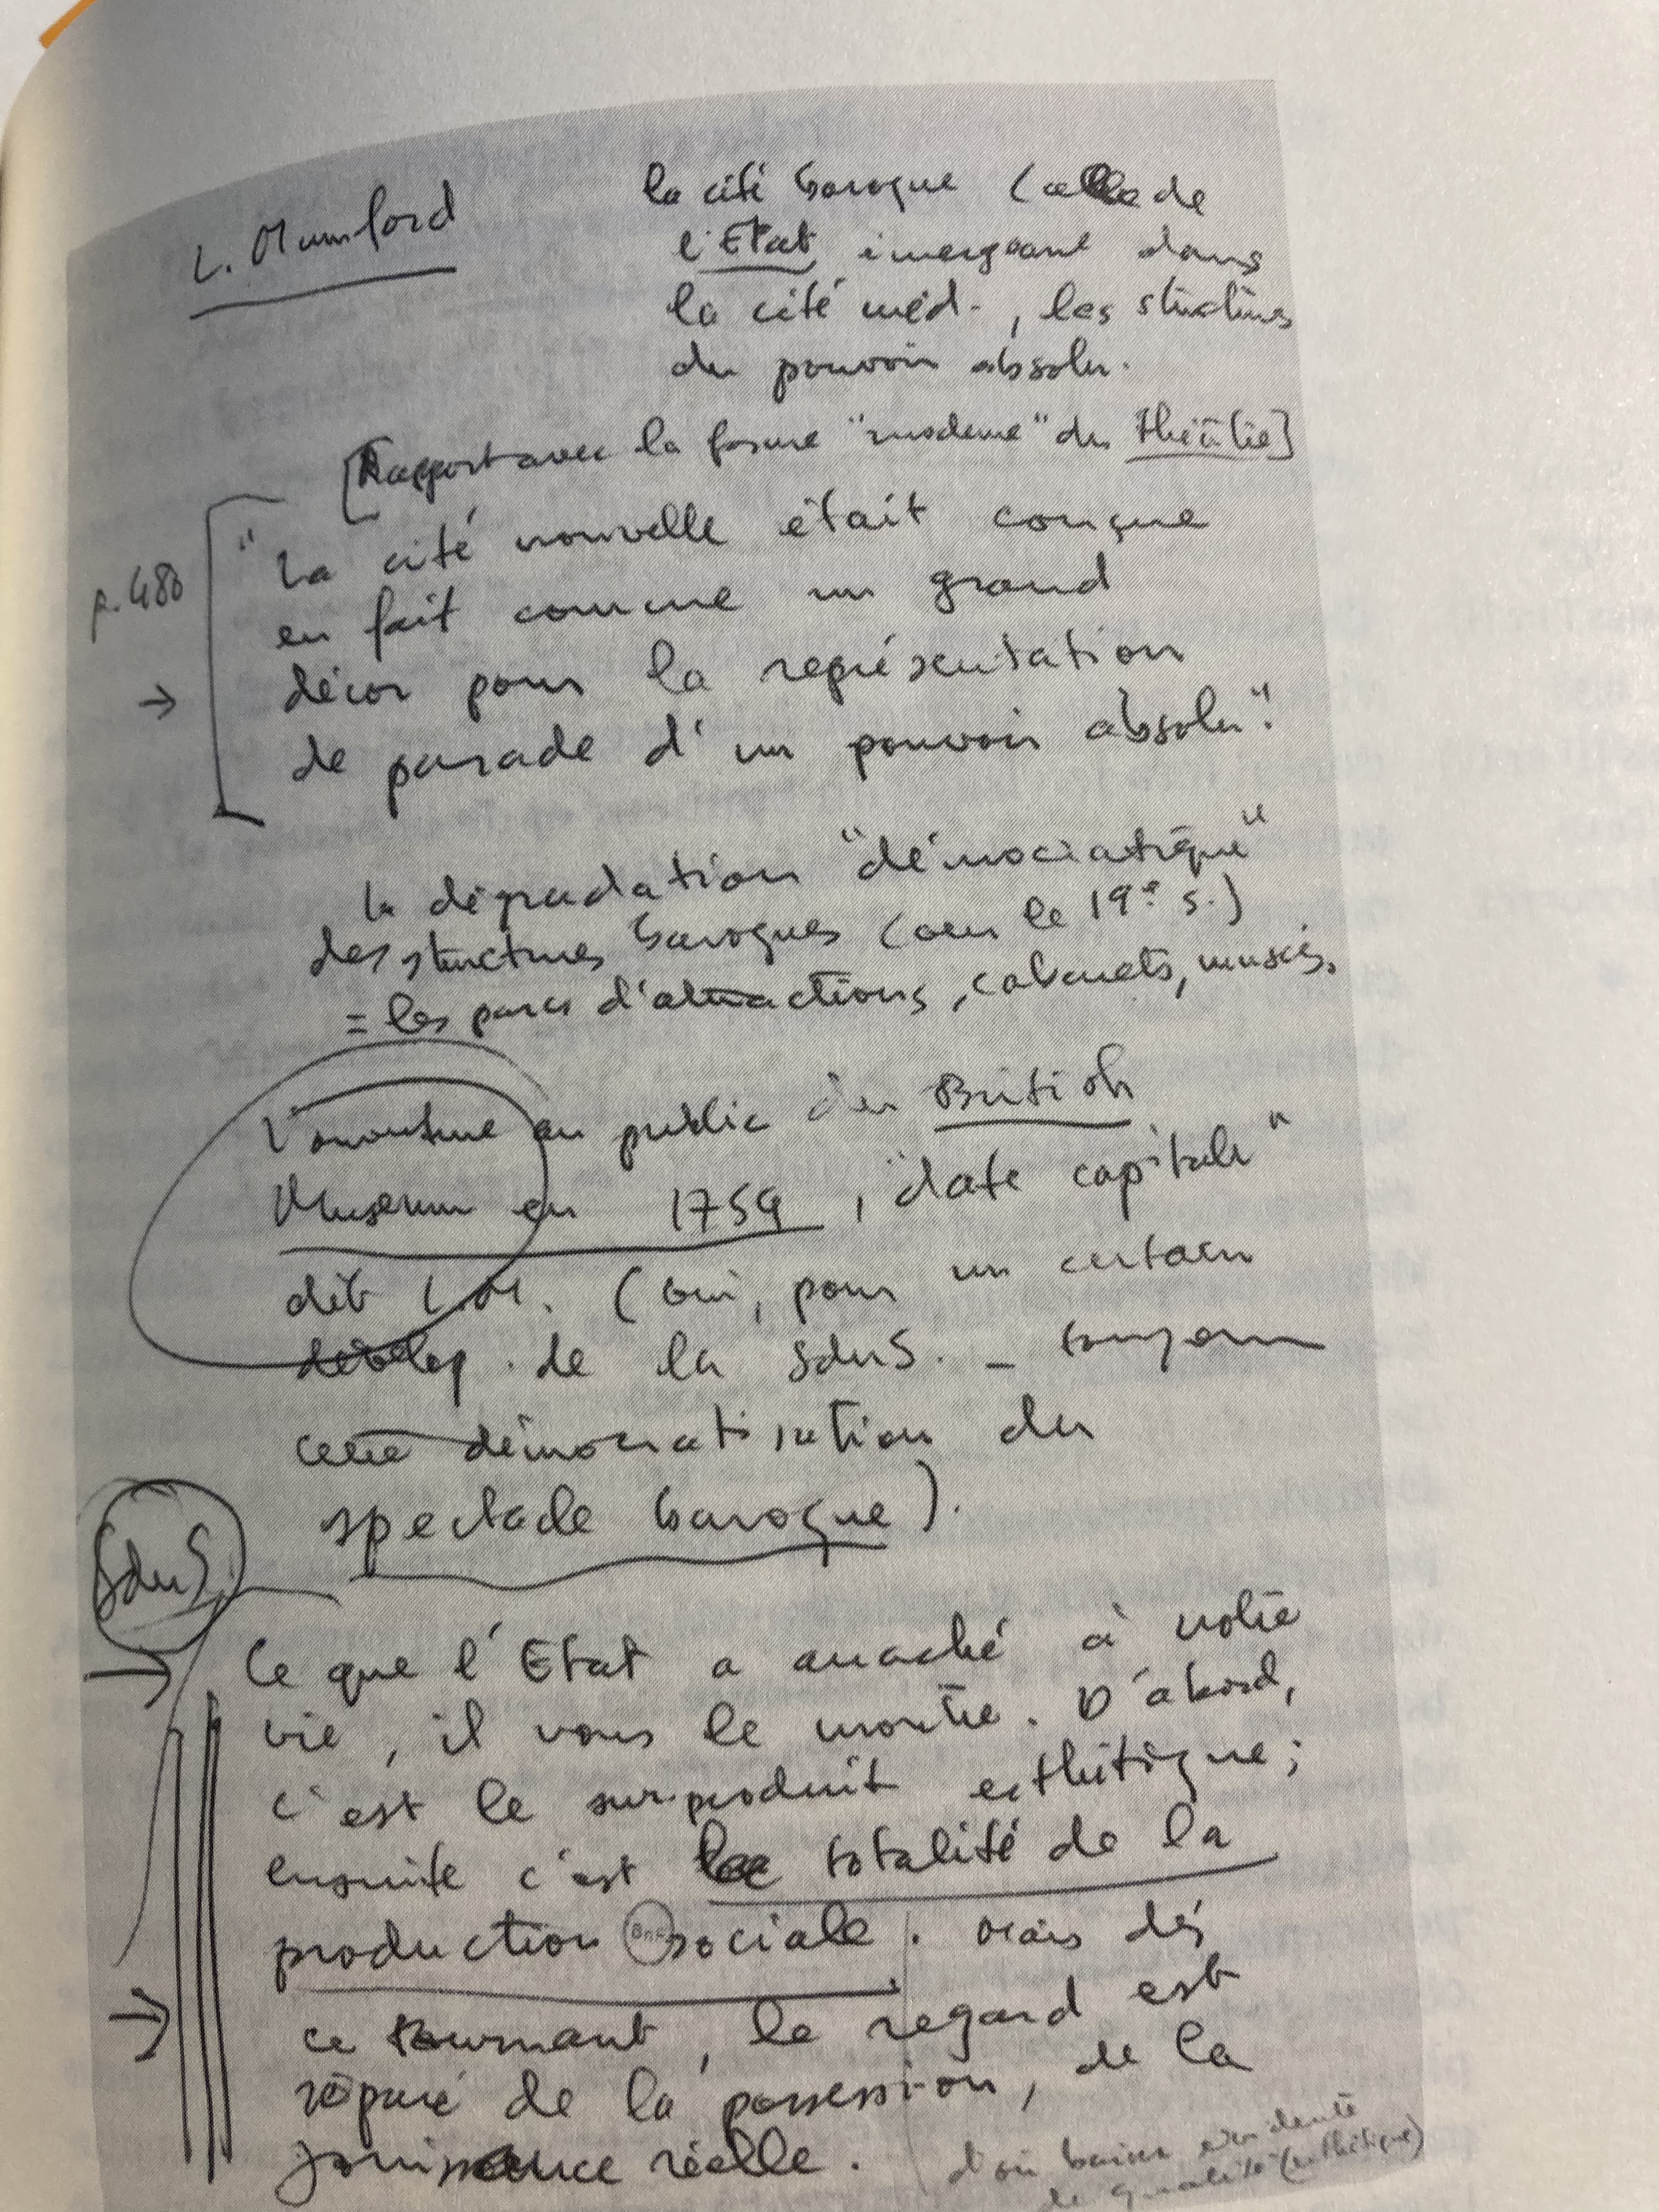 L. Mumford
la cité baroque (celle de
l'Etat émergeant dans
la cité méd., les structures
du pouvoir absolu.
[Rapport avec la forme "moderne" du théâtre]
p. 480
"La cité nouvelle était conçue
en fait comme un grand
→ décor pour la représentation
de parade d'un pouvoir absolu".
la dégradation "démocratique"
des structures baroques (vers le 19e s.)
= les parcs d'attractions, cabarets, musées.
L'ouverture au public du British
Museum en 1759, "date capitale"
dit L.M. (oui, pour un certain
dévelop. de la SduS. - toujours
cette démocratisation du
spectacle baroque).
SduS
→ Ce que l'Etat a arraché à notre
vie, il vous le montre. D'abord,
c'est le sur-produit esthétique;
ensuite c'est la totalité de la
production sociale. Mais dès
→ ce tournant, le regard est
séparé de la possession, de la
jouissance réelle.
d'où baisse évidente
de qualité (esthétique)